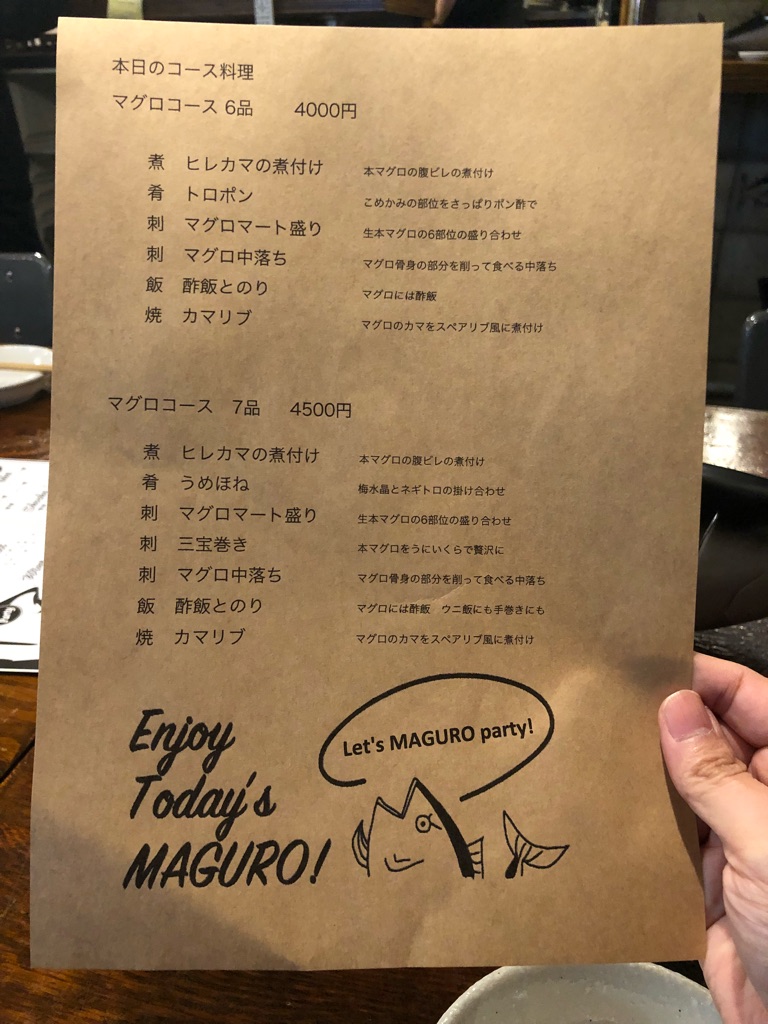 本日のコース料理
マグロコース 6品 4000円
煮 ヒレカマの煮付け 本マグロの腹ビレの煮付け
肴 トロポン こめかみの部位をさっぱりポン酢で
刺 マグロマート盛り 生本マグロの6部位の盛り合わせ
刺 マグロ中落ち マグロ骨身の部分を削って食べる中落ち
飯 酢飯とのり マグロには酢飯
焼 カマリブ マグロのカマをスペアリブ風に煮付け
マグロコース 7品 4500円
煮 ヒレカマの煮付け 本マグロの腹ビレの煮付け
肴 うめほね 梅水晶とネギトロの掛け合わせ
刺 マグロマート盛り 生本マグロの6部位の盛り合わせ
刺 三宝巻き 本マグロをうにいくらで贅沢に
刺 マグロ中落ち マグロ骨身の部分を削って食べる中落ち
飯 酢飯とのり マグロには酢飯 ウニ飯にも手巻きにも
焼 カマリブ マグロのカマをスペアリブ風に煮付け
Enjoy
Today's
MAGURO!
Let's MAGURO party!